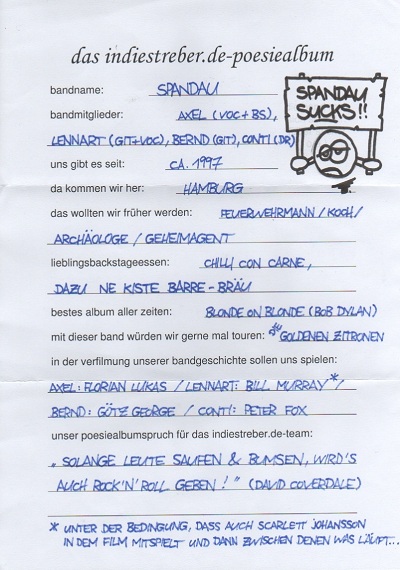 das indiestreber.de-poesiealbum
bandname: SPANDAU
SPANDAU
SUCKS!!
bandmitglieder: AXEL (VOC+BS),
LENNART (GIT+VOC), BERND (GIT), CONTI (DR)
uns gibt es seit: CA. 1997
da kommen wir her: HAMBURG
das wollten wir früher werden: FEUERWEHRMANN / KOCH /
ARCHÄOLOGE / GEHEIMAGENT
lieblingsbackstageessen: CHILLI CON CARNE,
DAZU NE KISTE BARRE-BRÄU
bestes album aller zeiten: BLONDE ON BLONDE (BOB DYLAN)
mit dieser band würden wir gerne mal touren: GOLDENEN ZITRONEN
in der verfilmung unserer bandgeschichte sollen uns spielen:
AXEL: FLORIAN LUKAS / LENNART: BILL MURRAY* /
BERND: GÖTZ GEORGE / CONTI: PETER FOX
unser poesiealbumspruch für das indiestreber.de-team:
„SOLANGE LEUTE SAUFEN & BUMSEN, WIRD'S
AUCH ROCK'N'ROLL GEBEN!" (DAVID COVERDALE)
* UNTER DER BEDINGUNG, DASS AUCH SCARLETT JOHANSSON
IN DEM FILM MITSPIELT UND DANN ZWISCHEN DENEN WAS LÄUFT...